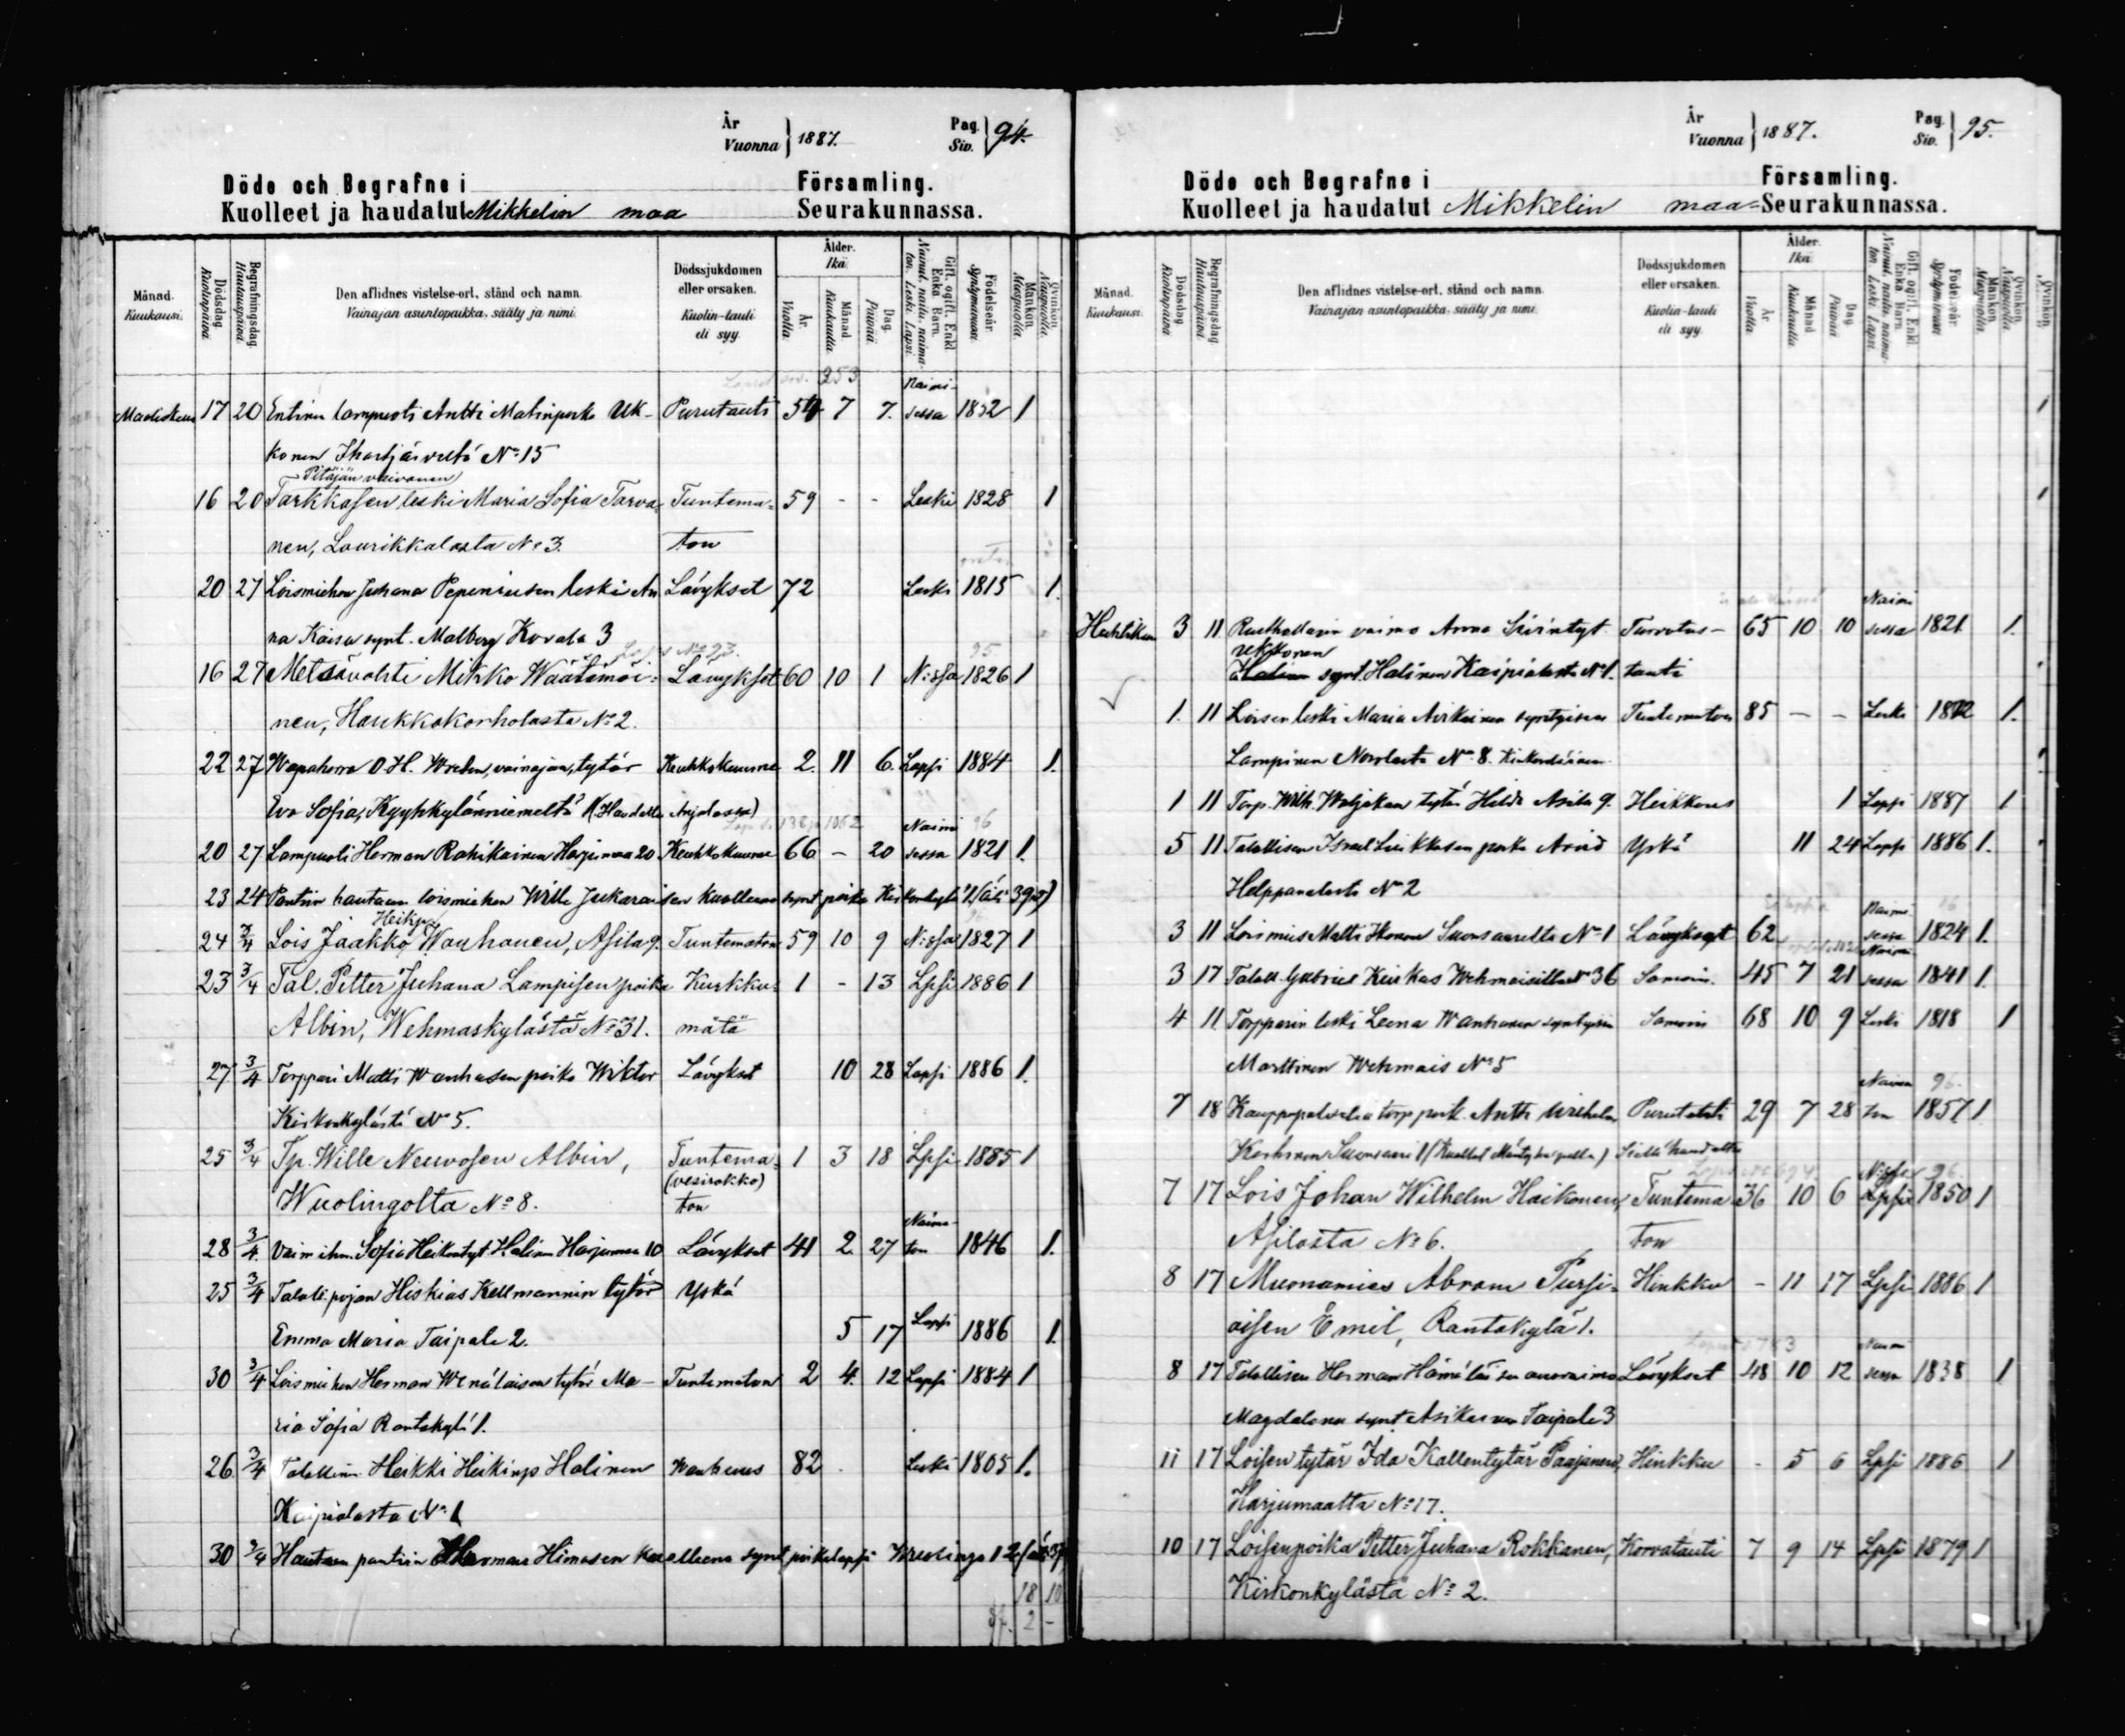 År
Vuonna } 1887.
Pag.
Siv. } 94.
Döde och Begrafne i Församling.
Kuolleet ja haudatut Mikkelin maa Seurakunnassa.
Månad. Kuukausi.
Dödsdag. Kuolinpäivä.
Begrafningsdag. Hautauspäivä.
Den aflidnes vistelse-ort, stånd och namn.
Vainajan asuntopaikka, sääty ja nimi.
Dödssjukdomen eller orsaken.
Kuolin-tauti eli syy.
Ålder. Ikä.
År. Vuotta.
Månad Kuukautta.
Dag. Päivää.
Gift, ogift, Enkl. Enka Barn.
Nainut, naitu, naimaton. Leski. Lapsi.
Födelseår. Syntymävuosi.
Mankön. Miespuolia.
Qvinkön. Naispuolia.
253
Maaliskuu 17 20 Entinen lampuoti Antti Matinpoika Uk- Purutauti 54 7 7. Naimi- sessa 1832 1
konen Ihastjärveltä No 15
Pitäjän vaivanen
16 20 Tarkkasen leski Maria Sofia Tarva= Tuntema= 59 - - Leski 1828 1
nen, Laurikkalasta No 3. ton
20 27 Loismiehen Juhana Pepeniusen leski An Lävykset 72 Leski 1815 1.
na Kaisa synt. Malberg Kovala 3
16 27 Metsävahti Mikko Wäätämöi= Lävykset 60 10 1 N:ssa 1826 1
nen, Haukkakorholasta No 2.
22 27 Wapaherra O. H. Wreden, vainajan, tytär Keuhkokuume 2. 11 6. Lapsi 1884 1.
Eva Sofia, Kyyhkylänniemeltä (Haudattu Anjalassa)
20 27 Lampuoti Herman Rahikainen Harjumaa 20 Keuhkokuume 66 - 20 Naimi sessa 1821 1.
23 24 Pantiin hautaan loismiehen Wille Jukaraisen kuolleena synt poika Kirkonkylä
24 3/4 Lois Jaakko Heikinp. Wanhanen, Asila 9. Tuntematon 59 10 9 N:ssa 1827 1
23 3/4 Tal. Petter Juhana Lampisen poika Kurkku= 1 - 13 Lpsi 1886 1
Albin, Wehmaskylästä No 31. mätä
27 3/4 Torppari Matti Wanhasen poika Wiktor Lävykset 10 28 Lapsi 1886 1.
Kirkonkylästä No 5.
25 3/4 Tp. Wille Neuvosen Albin, Tuntema= 1 3 18 Lpsi 1885 1
(vesirokko)
Wuolingolta No 8. ton
28 3/4 Vaiv ihm. Sofia Heikintyt Halinen Harjumaa 10 Lävykset 41 2. 27 Naima- ton 1846 1.
25 3/4 Taloll: pojan Hiskias Kellmannin tytär Yskä
Emma Maria Taipale 2. 5 17 Lapsi 1886 1.
30 3/4 Loismiehen Herman Wenäläisen tytär Ma- Tuntematon 2 4. 12 Lapsi 1884 1
ria Sofia Rantakylä 1.
26. 3/4 Talollinen Heikki Heikinp Halinen Wanhuus 82 - Leski 1805 1.
Kaipialasta No 1
30 3/4 Hautaan pantiin Herman Himasen kuolleena synt poikalapsi Wuolingo 12
18 10
2 -
År
Vuonna } 1887.
Pag.
Siv. } 95.
Döde och Begrafne i Församling.
Kuolleet ja haudatut Mikkelin maa= Seurakunnassa.
Månad. Kuukausi.
Dödsdag. Kuolinpäivä
Begrafningsdag Hautauspäivä
Den aflidnes vistelse-ort, stånd och namn.
Vainajan asuntopaikka, sääty ja nimi.
Dödssjukdomen eller orsaken.
Kuolin-tauti eli syy.
Ålder. Ikä.
År Vuotta.
Månad Kuukautta.
Dag Päivää
Gift, ogift, Enkl. Enka Barn.
Nainut, naitu, naimaton. Leski. Lapsi.
Födelseår. Syntymävuosi
Mankön. Miespuolia.
Qvinkön. Naispuolia.
Huhtikuu 3 11 vaimo Anna Turvotus- 65 10 10 Naimi sessa 1821 1.
Ukkonen
synt. Halinen Kaipialasta No 1. tauti
1. 11 Loisen leski Maria Airikainen syntyisin Tuntematon 85 - - Leski 1802 1.
Lampinen Norolasta No 8.
1 11 Torp. Wilh. Waljakan tytär Hilda Asila 9. Heikkous 1 Lapsi 1887 1
5 11 Talollisen Israel Liukkosen poika Arvid Yskä 11 24 Lapsi 1886 1.
Helppanalasta No 2
3 11 Loismies Matti Ikonen Suonsaarelta No 1 Lävykset 62 Naimi sessa 1824 1.
3 17 Taloll. Gabriel Kiukas Wehmaisilta No 36 Samoin. 45 7 21 Naimi sessa 1841 1.
4 11 Torpparin leski Leena Wanhanen syntyisin Samoin 68 10 9 Leski 1818 1
Marttinen Wehmais No 5
7 18 Antti Wilhelm Purutauti 29 7 28 Naima ton 1857 1
Suonsaari 1 Siellä haudattu
7 17 Lois Johan Wilhelm Haikonen, Tuntema 36 10 6 N:ssa 1850 1
Asilasta No 6. ton
8 17 Muonamies Abram Pursi= Hinkku - 11 17 Lpsi 1886 1
aisen Emil, Rantakylä 1.
8 17 Talollisen Herman Hämäläisen Lävykset 48 10 12 Naimi sessa 1838 1
Magdalena synt Asikainen Taipale 3
11 17 Loisen tytär Ida Kallentytär Paajanen, Hinkku - 5 6 Lpsi 1886 1
Harjumaalta No 17.
10 17 Loisenpoika Petter Juhana Rokkanen, Korvatauti 7 9 14 Lpsi 1879 1
Kirkonkylästä No 2.